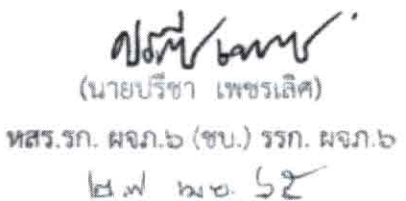 (นายปรีชา เพชรเลิศ)
หสร.รก. ผจภ.๖ (ชบ.) รรก. ผจภ.๖
๒๗ เม.ย. ๖๕